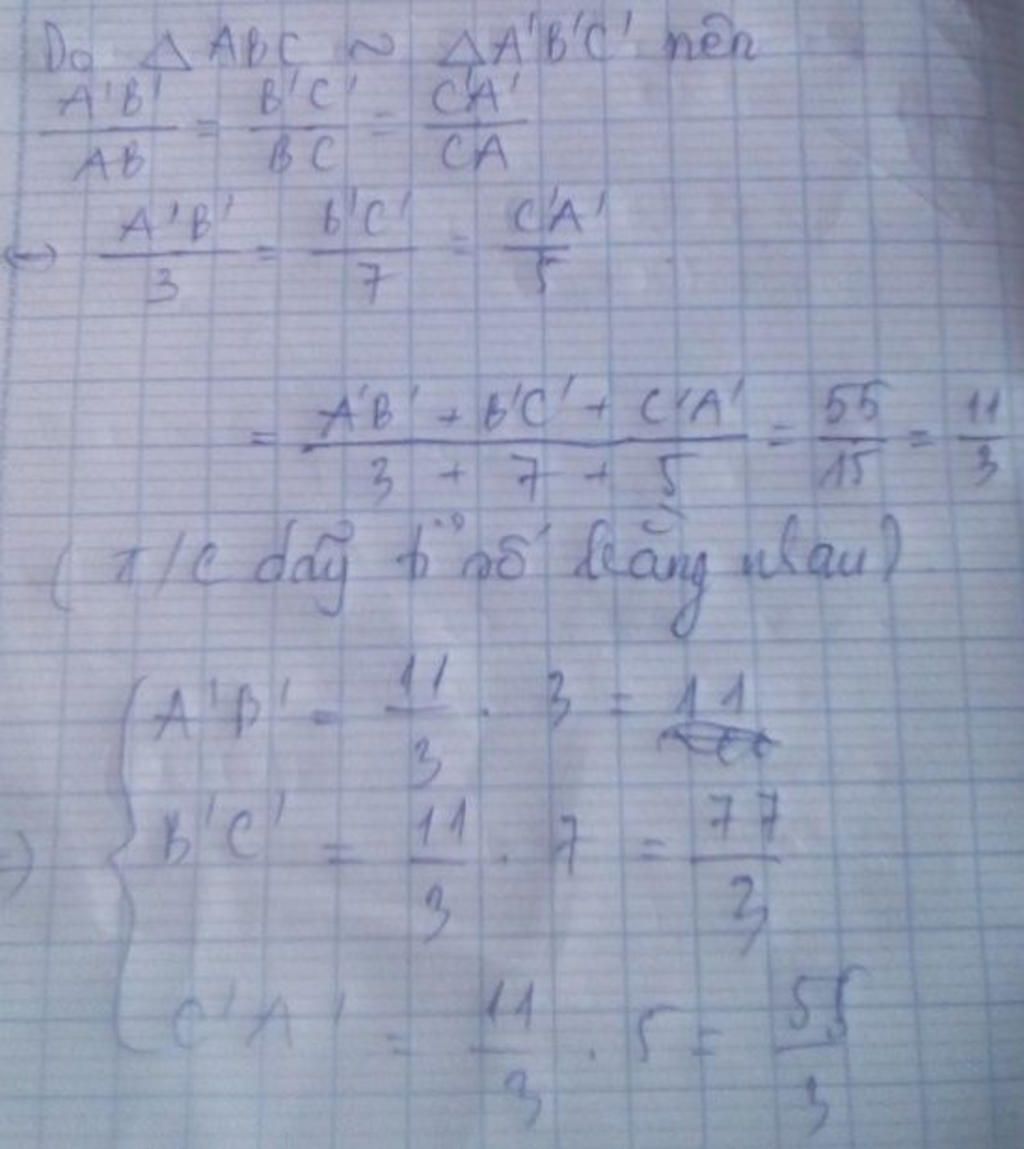 Do △ ABC ~ △A'B'C' nên
A'B'/AB = B'C'/BC = C'A'/CA
↔ A'B'/3 = B'C'/7 = C'A'/5
= A'B' + B'C' + C'A'/3 + 7 + 5 = 55/15 = 11/3
( T/C dãy tỉ số bằng nhau)
A'B' = 11/3 . 3 = 11
⇒ { B'C' = 11/3 . 7 = 77/3
C'A' = 11/3 . 5 = 55/3